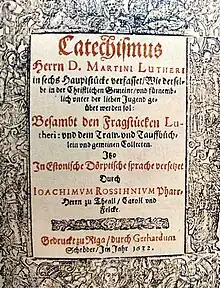 Catechismus
Herrn D. MARTINI LUTHERI
in sechs Hauptstücke verfasset / Wie dersel-
be in der Christlichen Gemeine / und fürnem-
lich unter der lieben Jugend ge-
übet werden sol:
Besambt den Fragstücken Lu-
theri: und dem Traw und Tauffbüch-
lein und gemeinen Collecten.
Itzo
In Estonische Dörptische sprache versetzet
Durch
IOACHIMUM ROSSIHNIUM Pfarr-
Herrn zu Theall / Carol und
Felcke.
Gedruckt zu Riga / durch Gerhardum
Schröder / Im Jahr 1632.